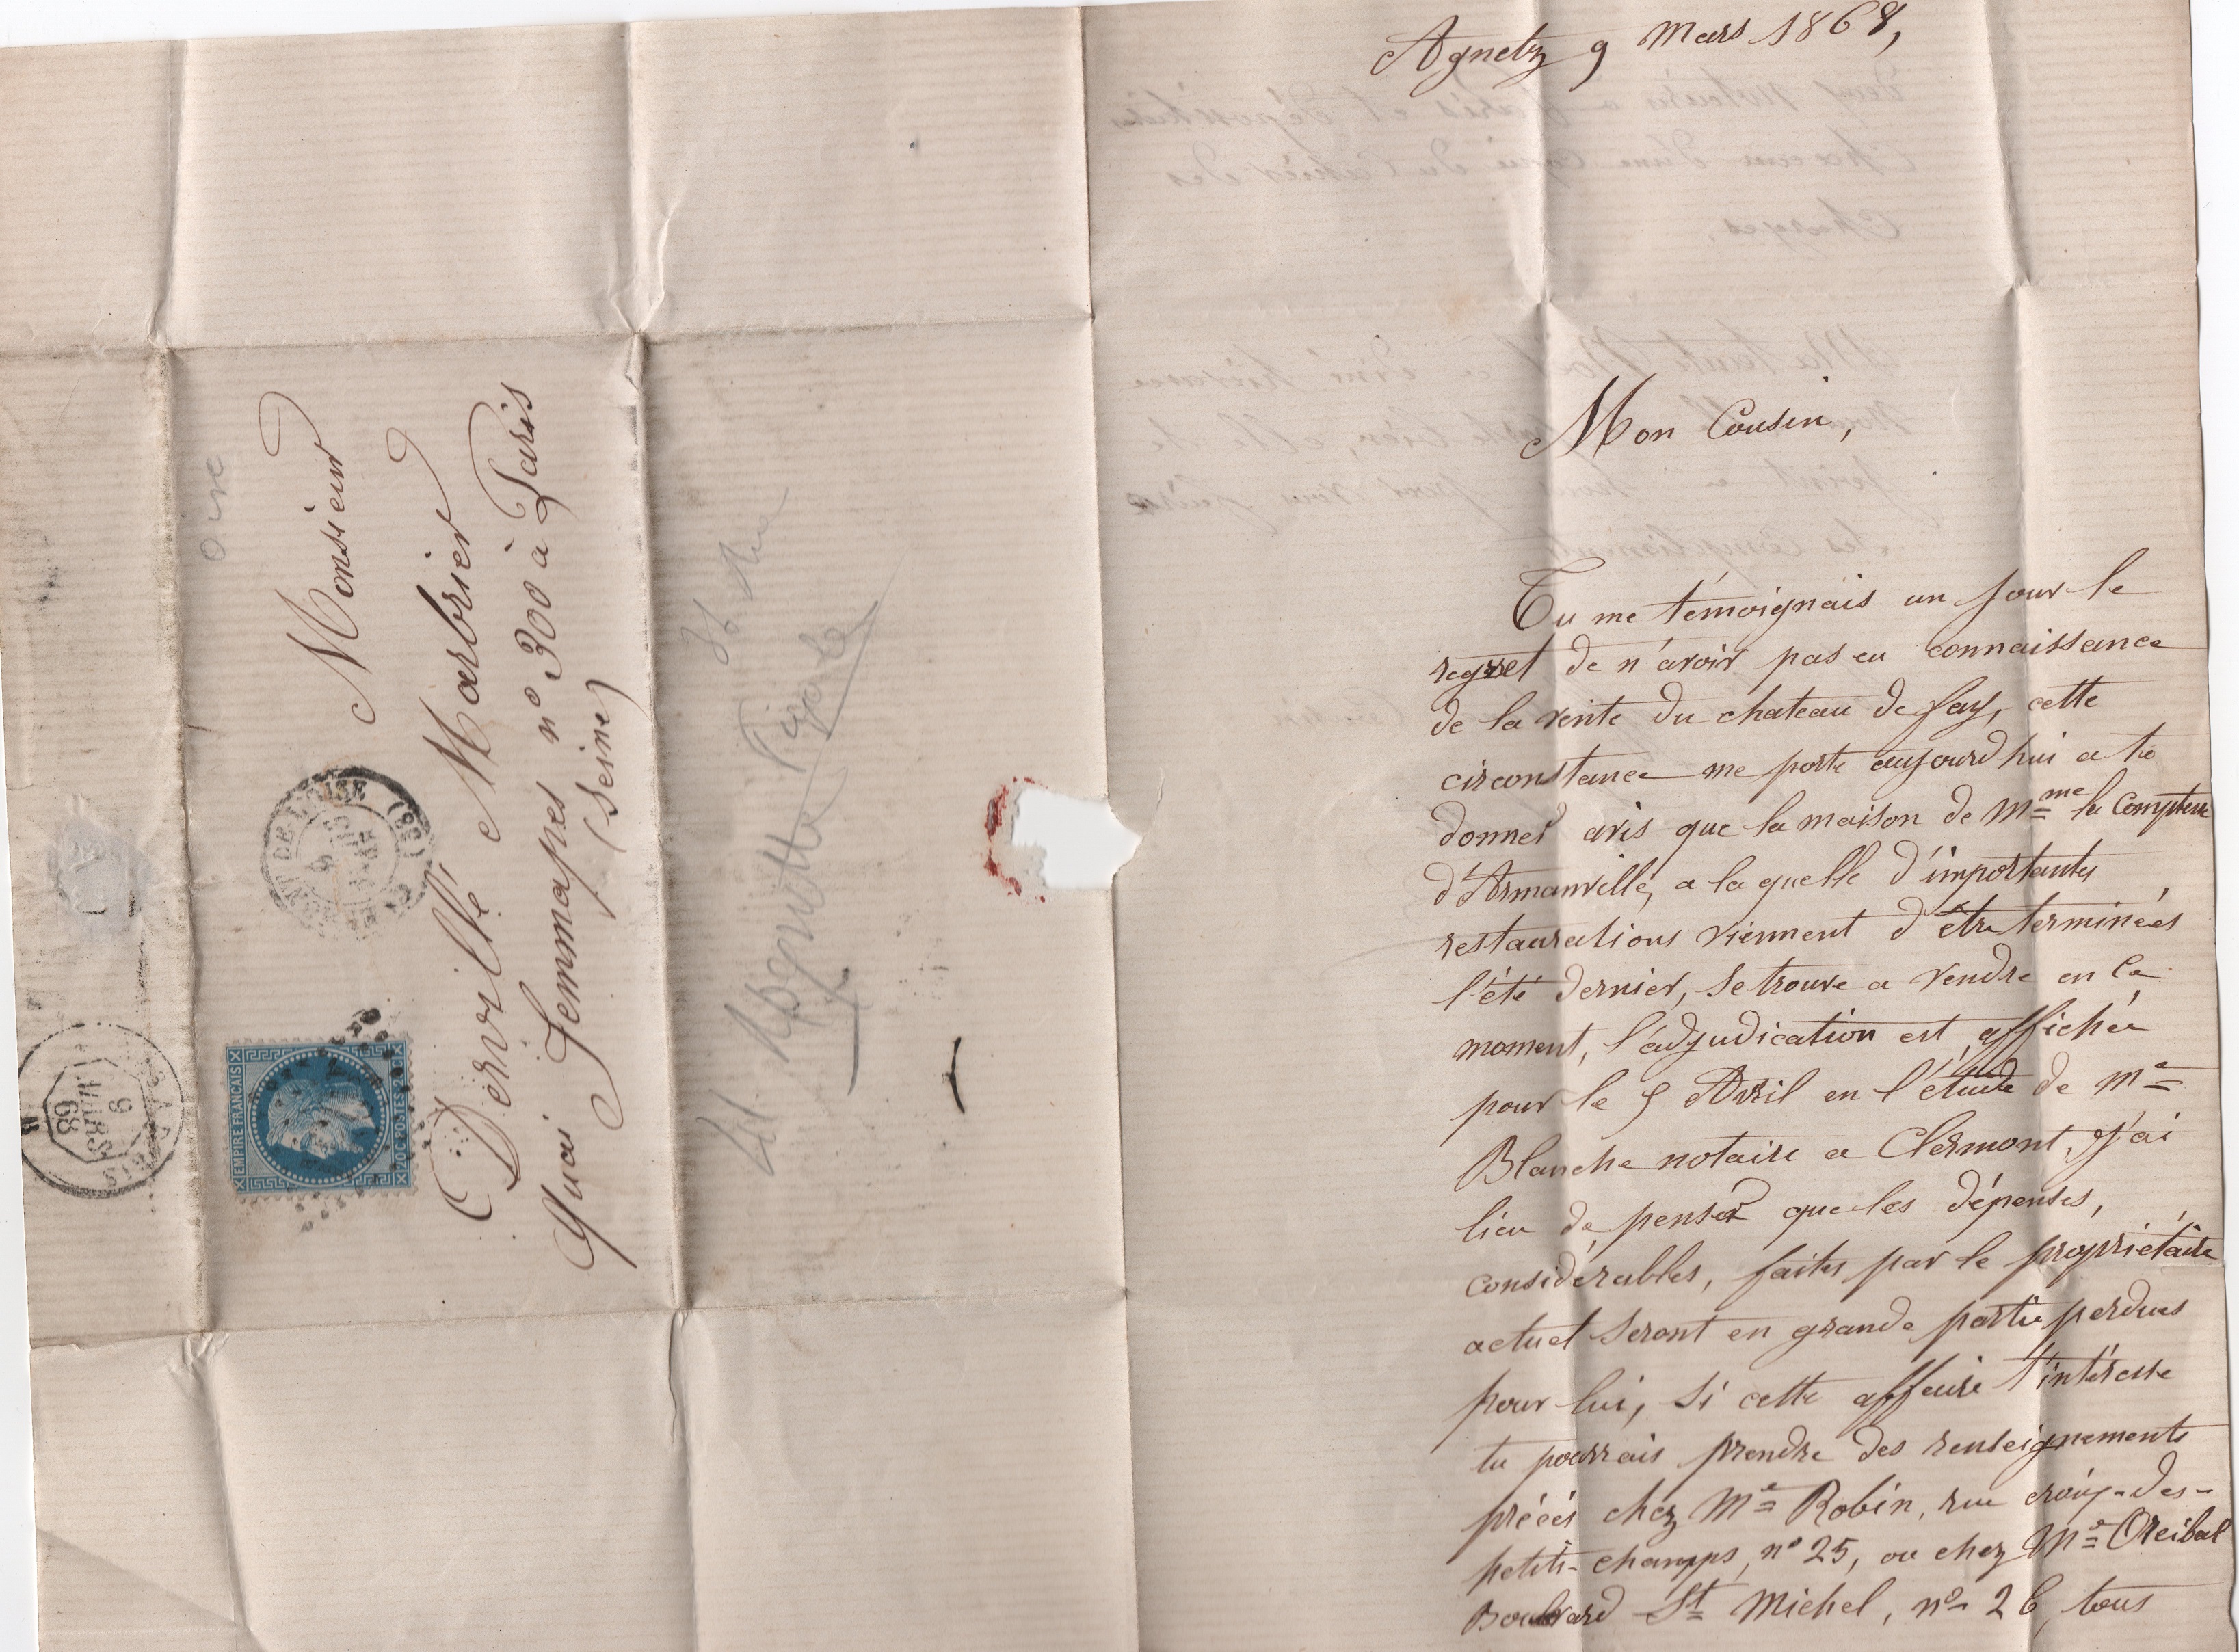 Agnetz 9 Mars 1868,
Mon Cousin,
Tu me témoignais un jour le
regret de n'avoir pas eu connaissance
de la vente du chateau de fay, cette
circonstance me porte aujourd'hui a te
donner avis que la maison de Mme la Comptesse
d'Armanville, a laquelle d'importantes
restaurations viennent d'être terminées
l'été dernier, se trouve a vendre en ce
moment, l'adjudication est affichée
pour le 5 Avril en l'étude de Me
Blanche notaire a Clermont, j'ai
lieu de penser que les dépenses,
considérables, faites par le propriétaire
actuel seront en grande partie perdues
pour lui, si cette affaire t'intéresse
tu pourrais prendre des renseignements
précis chez Me Robin, rue croix-des-
petits-champs, n° 25, ou chez Me
Boulevard St Michel, n° 26, tous
Monsieur
Dervillé Marbrier
Quai Jemmapes n° 300 à Paris
(Seine)
Oise
CLERMONT DE L'OISE (58)
9
MARS
68
EMPIRE FRANÇAIS
20C POSTES 20C
PARIS
9
MARS
68